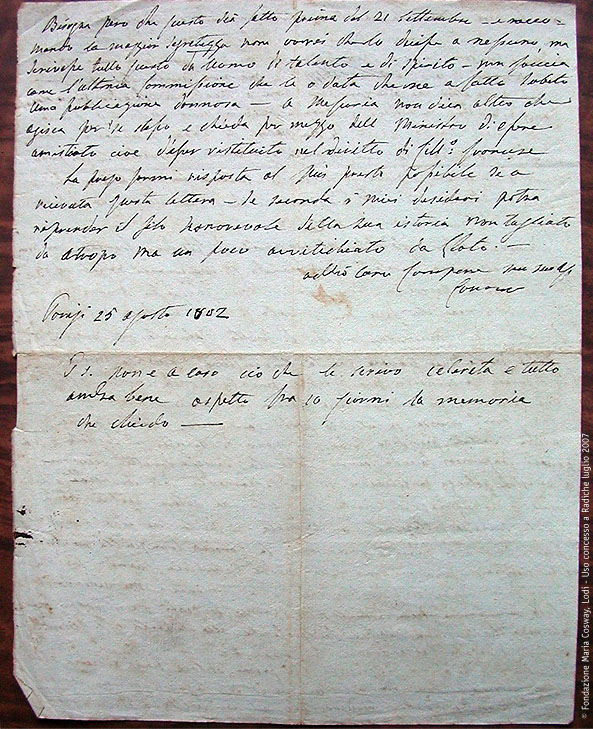 Bisogna però che questo sia fatto prima del 21 settembre – e racco-
mando la maggior segretezza non vorrei che lo dicesse a nessuno, ma
scrivesse tutto questo da uomo di talento e di spirito – non faccia
come l'ultima commissione che le ò data che ne a fatto subito
una pubblicazione dannosa – a nessuno non dica altro che
agisca per se stesso e chieda per mezzo dell Ministro di essere
cioè d'esser restituito nel diritto di
La prego darmi risposta al più presto possibile se a
ricevuta questa lettera – se seconda i miei desideri potrà
riprender il filo honorevole della sua istoria non tagliato
da atropo ma un poco avviticchiato da Cloto. –
addio caro Compare suo
Parigi 25 agosto 1802
P. s. non è a caso ciò che le scrivo celerità e tutto
andrà bene aspetto fra 10 giorni la memoria
che chiedo —
© Fondazione Maria Cosway, Lodi - Uso concesso a Radiche luglio 2007